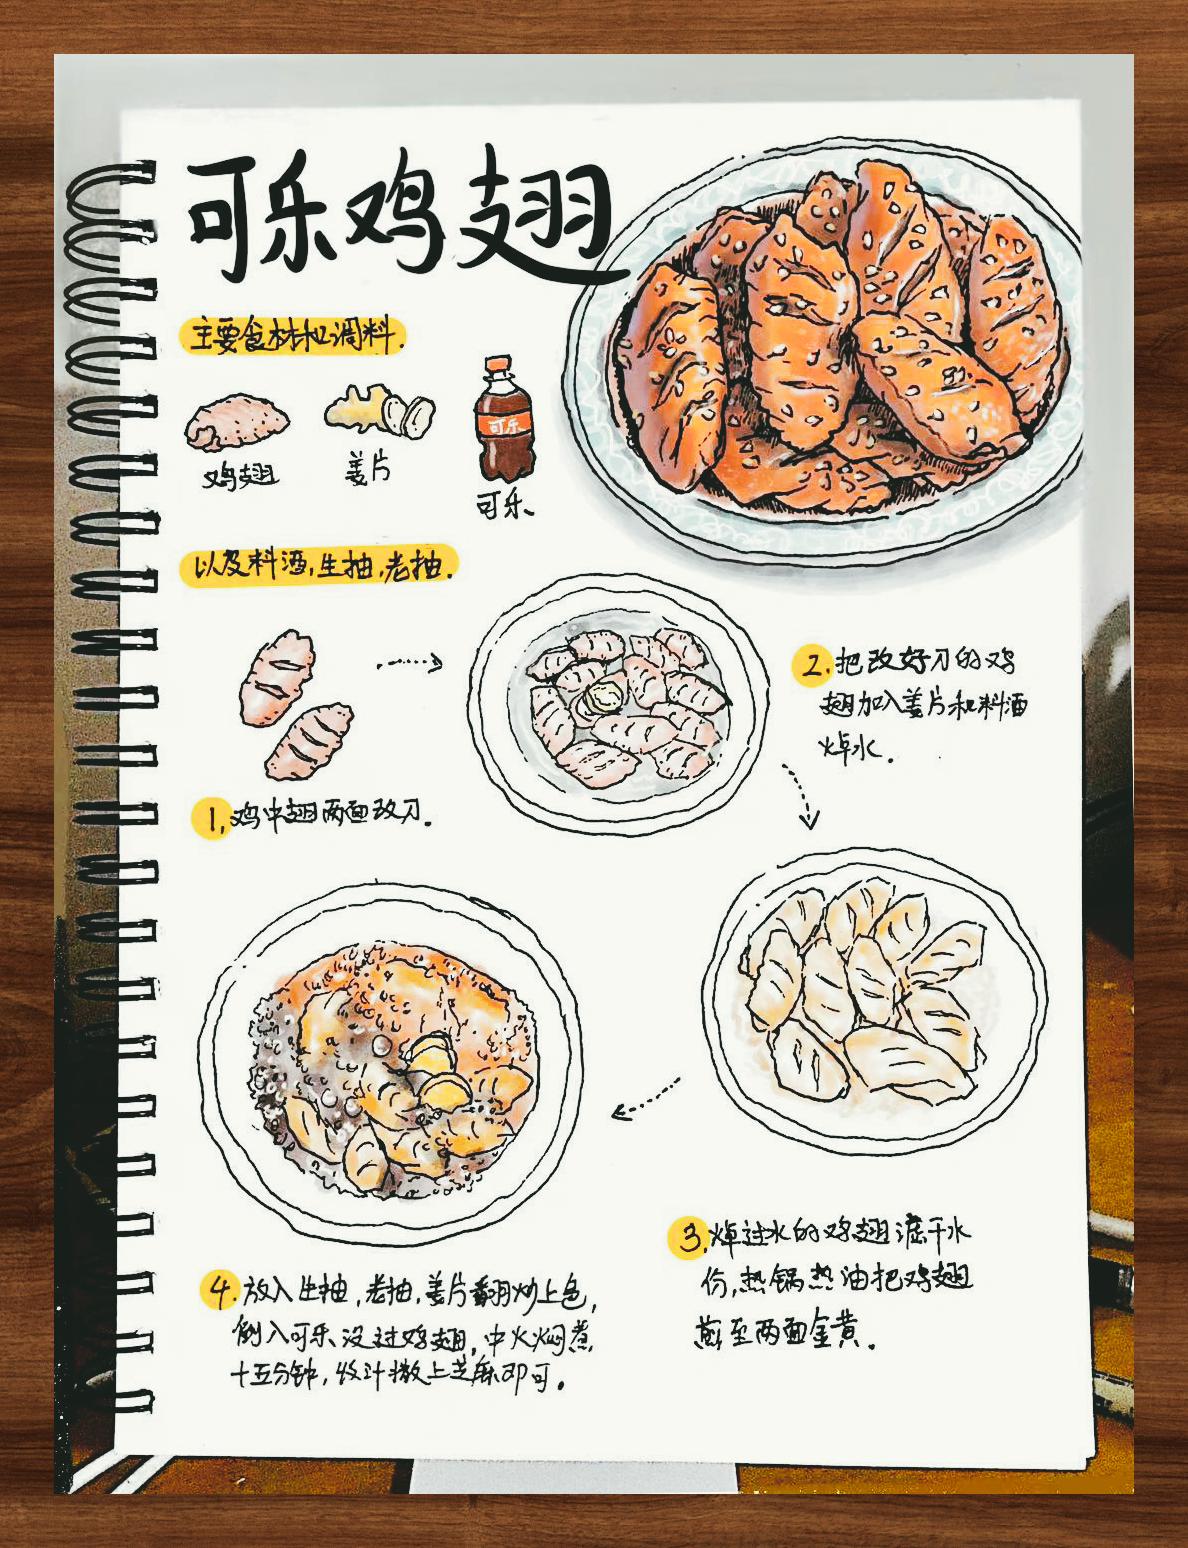 可乐鸡翅
主要食材和调料.
鸡翅
姜片
可乐
可乐
以及料酒,生抽,老抽.
1,鸡中翅两面改刀.
2.把改好刀的鸡
翅加入姜片和料酒
焯水.
3.焯过水的鸡翅滤干水
份,热锅热油把鸡翅
煎至两面金黄.
4.放入生抽,老抽,姜片翻炒上色,
倒入可乐没过鸡翅,中火焖煮
十五分钟,收汁撒上芝麻即可.